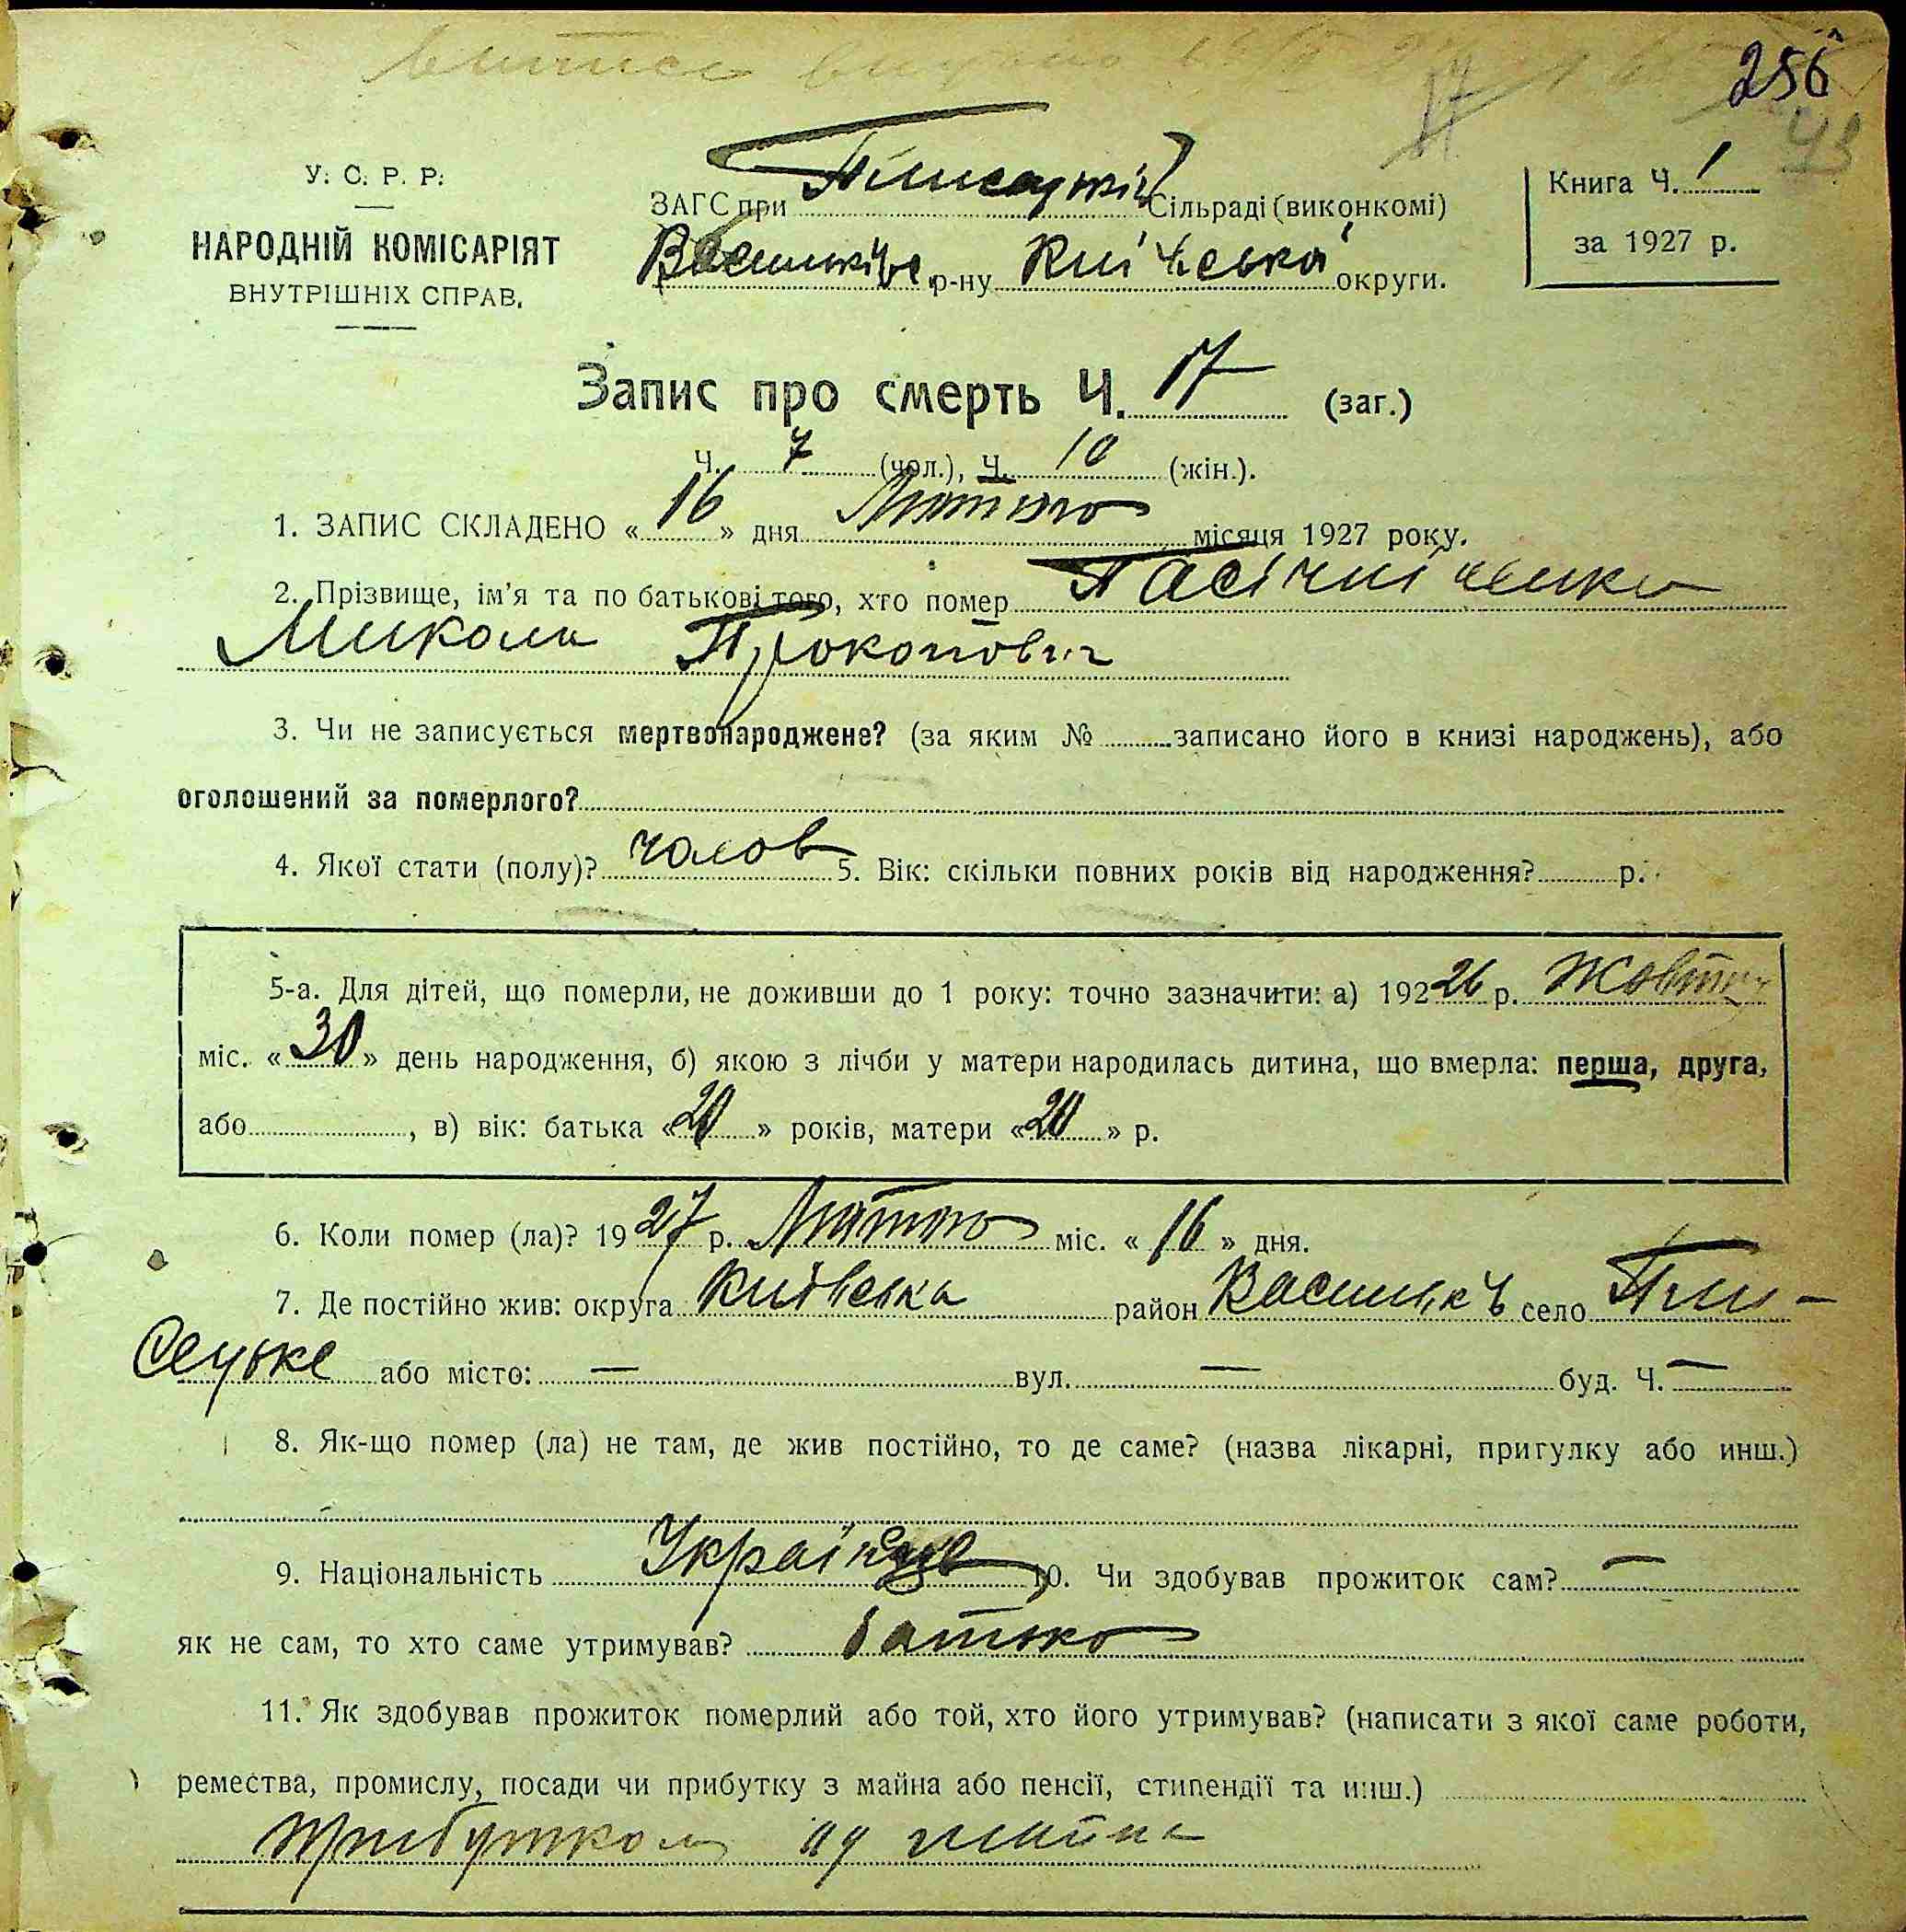 256
43
17
У. С. Р. Р.
НАРОДНІЙ КОМІСАРІЯТ
ВНУТРІШНІХ СПРАВ.
ЗАГС при Сільраді (виконкомі)
р-ну Київська округи.
Книга Ч. 1
за 1927 р.
Запис про смерть Ч. 17 (заг.)
Ч. 7 (чол.), Ч. 10 (жін.).
1. ЗАПИС СКЛАДЕНО « 16 » дня Лютого місяця 1927 року.
2. Прізвище, ім'я та по батькові того, хто помер
Микола Прокопович
3. Чи не записується мертвонароджене? (за яким № записано його в книзі народжень), або
оголошений за померлого?
4. Якої стати (полу)? чолов 5. Вік: скільки повних років від народження? р.
5-а. Для дітей, що померли, не доживши до 1 року: точно зазначити: а) 192 26 р.
міс. « 30 » день народження, б) якою з лічби у матери народилась дитина, що вмерла: перша, друга,
або , в) вік: батька « 20 » років, матери « 20 » р.
6. Коли помер (ла)? 19 27 р. Лютого міс. « 16 » дня.
7. Де постійно жив: округа Київська район село Пли-
сецьке або місто: — вул. — буд. Ч. —
8. Як-що помер (ла) не там, де жив постійно, то де саме? (назва лікарні, пригулку або инш.)
9. Національність 10. Чи здобував прожиток сам? —
як не сам, то хто саме утримував? батько
11. Як здобував прожиток померлий або той, хто його утримував? (написати з якої саме роботи,
ремества, промислу, посади чи прибутку з майна або пенсії, стипендії та инш.)
прибутком майна